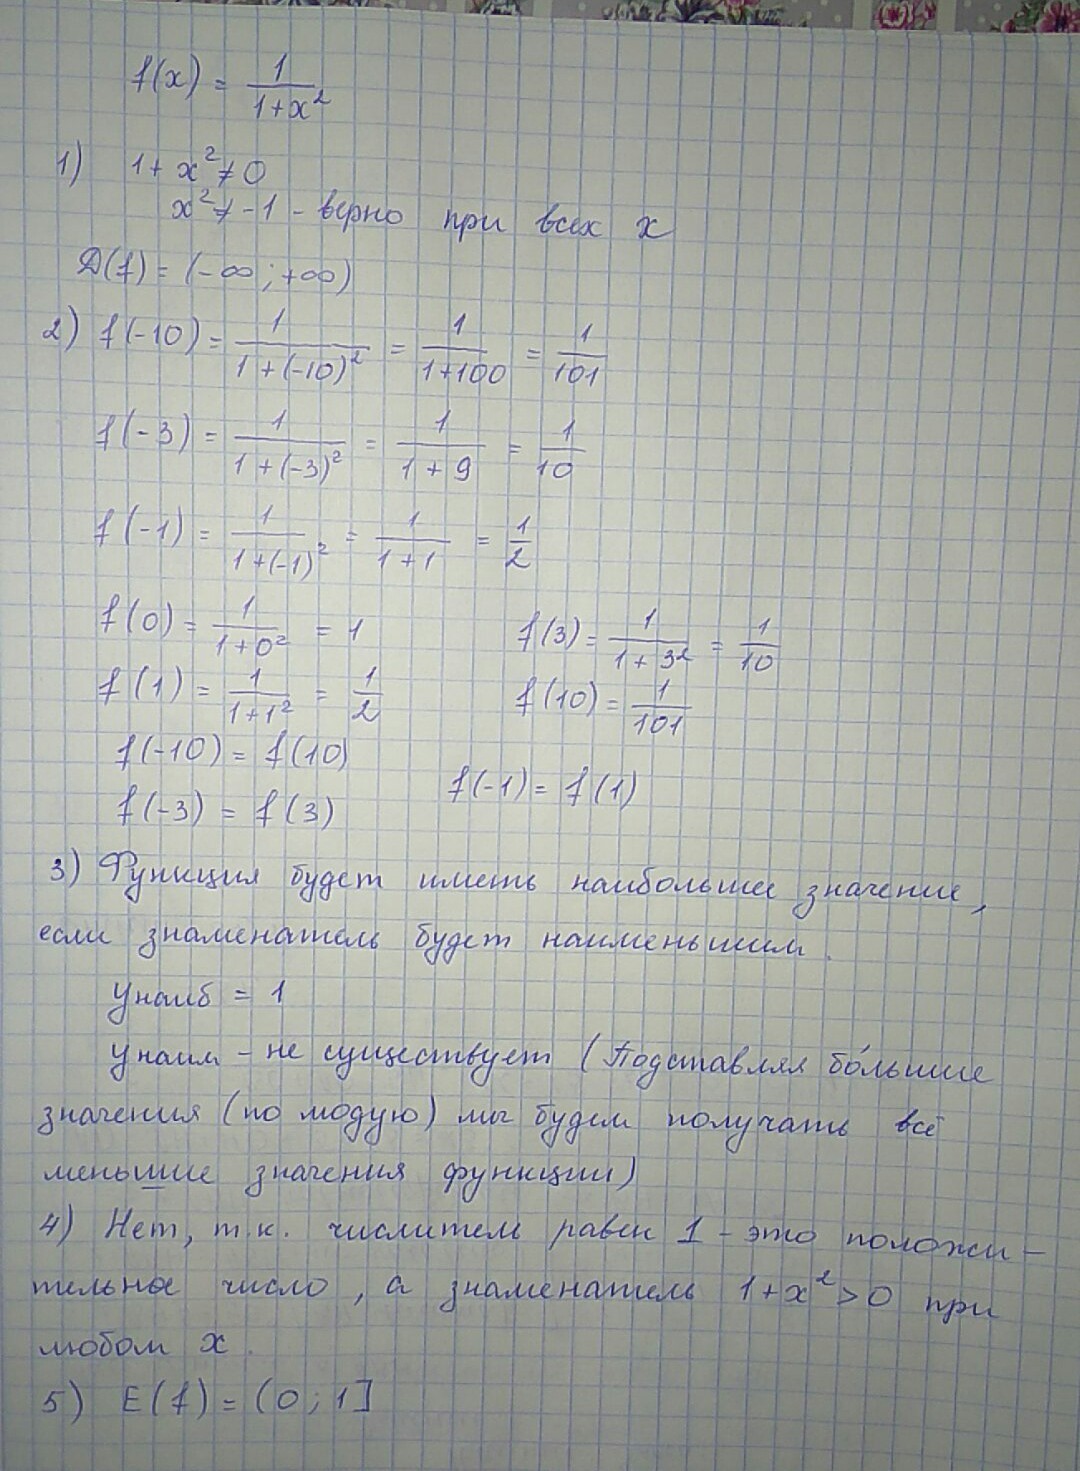 f(x) = 1/(1+x²)
1) 1+x²≠0
x²≠-1 - верно при всех x
D(f) = (-∞; +∞)
2) f(-10) = 1/(1+(-10)²) = 1/(1+100) = 1/101
f(-3) = 1/(1+(-3)²) = 1/(1+9) = 1/10
f(-1) = 1/(1+(-1)²) = 1/(1+1) = 1/2
f(0) = 1/(1+0²) = 1 f(3) = 1/(1+3²) = 1/10
f(1) = 1/(1+1²) = 1/2 f(10) = 1/101
f(-10) = f(10)
f(-3) = f(3) f(-1) = f(1)
3) Функция будет иметь наибольшее значение,
если знаменатель будет наименьшим.
унаиб = 1
унаим - не существует (Подставляя бо́льшие
значения (по модую) мы будем получать всё
меньшие значения функции)
4) Нет, т.к. числитель равен 1 - это положи-
тельное число, а знаменатель 1+x²>0 при
любом x.
5) E(f) = (0; 1]